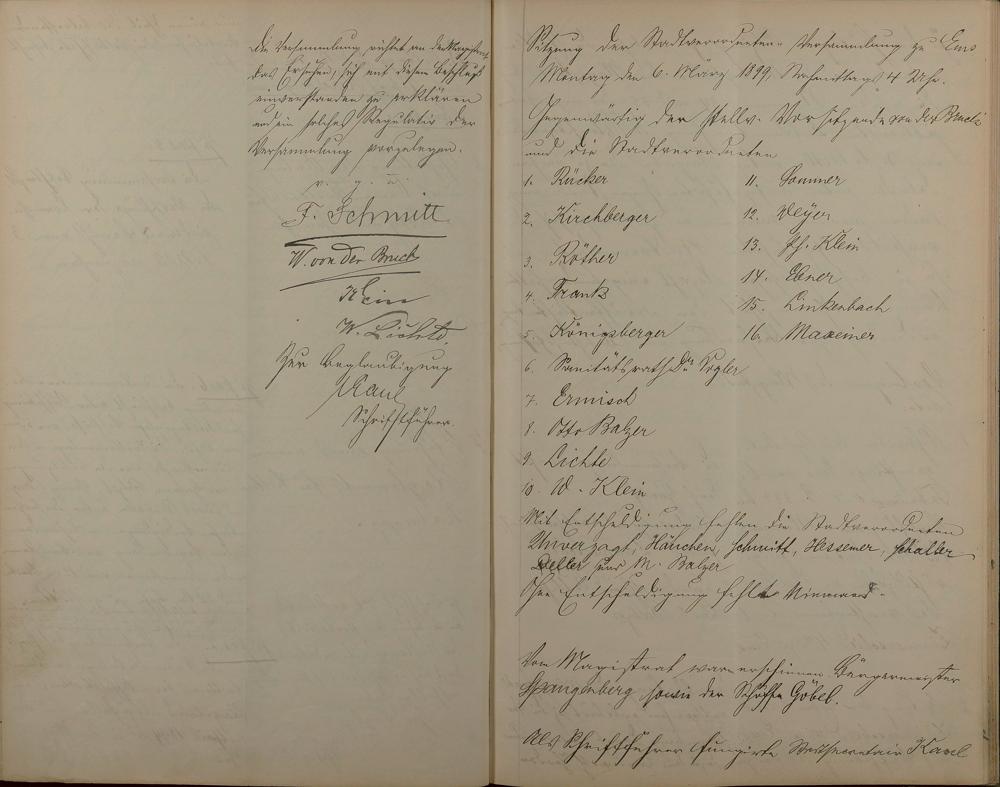 Die Versammlung richtet an den Magistrat
das Ersuchen, sich mit diesem Beschluß
einverstanden zu erklären
und ein solches Regulativ der
Versammlung vorzulegen.
v. g. u.
F. Schmitt
W. von der Bruck
Klein
W. Lichte
Zur Beglaubigung
Kaul
Schriftführer.
Sitzung der Stadtverordneten-Versammlung zu Ems
Montag den 6. März 1899, Nachmittags 4 Uhr.
Gegenwärtig der stellv. Vorsitzende von der Bruck
und die Stadtverordneten
1. Rücker
2. Kirchberger
3. Röther
4. Frank
5. Königsberger
6. Sanitätsrath Dr. Vogler
7. Ermisch
8. Otto Balzer
9. Lichte
10. W. Klein
11. Sommer
12. Weyer
13. Ph. Klein
14. Ebner
15. Linkenbach
16. Maxeiner
Mit Entschuldigung fehlen die Stadtverordneten
Unverzagt, Hänchen, Schmitt, Hessemer, Schaller
und M. Balzer
Ohne Entschuldigung fehlt Niemand.
Vom Magistrat waren erschienen Bürgermeister
Spangenberg sowie der Schöffe Göbel.
Als Schriftführer fungirte Stadtsecretair Kaul